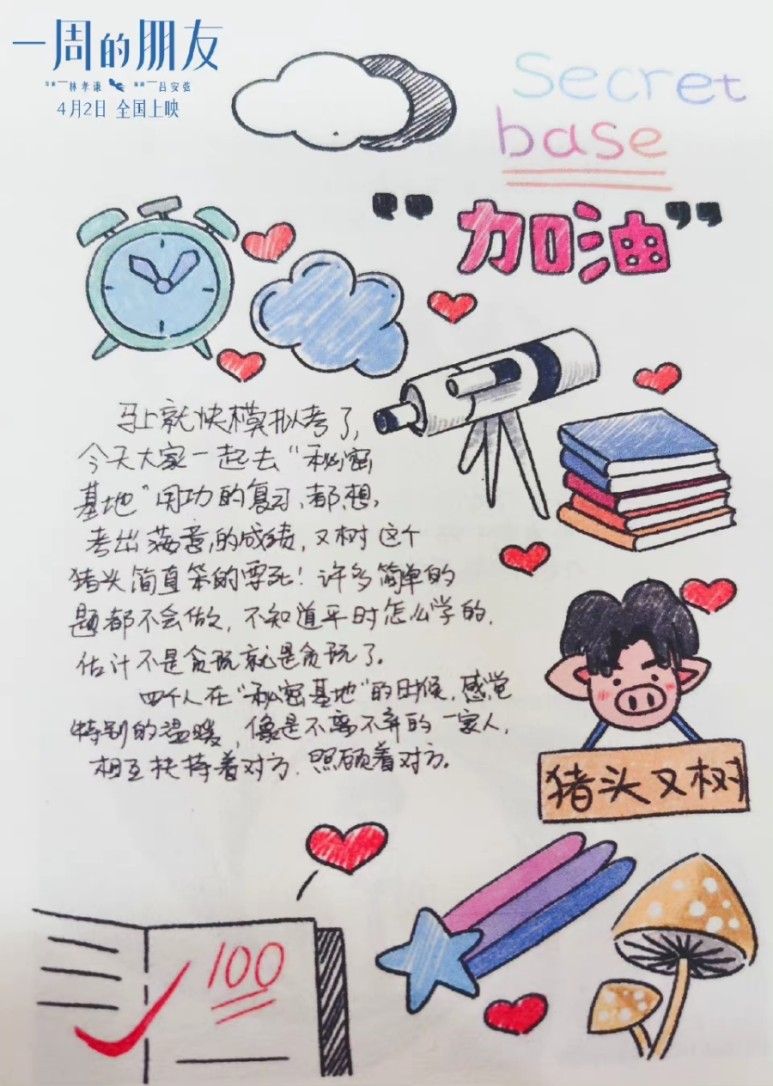 一周的朋友
导演 林孝谦 编剧 吕安弦
4月2日 全国上映
Secret
base
"加油"
马上就快模拟考了,
今天大家一起去"秘密
基地"用功的复习,都想,
考出满意的成绩,又树这个
猪头简直笨的要死!许多简单的
题都不会做,不知道平时怎么学的,
估计不是贪玩就是贪玩了。
四个人在"秘密基地"的时候,感觉
特别的温暖,像是不离不弃的一家人,
相互扶持着对方、照顾着对方。
猪头又树
100